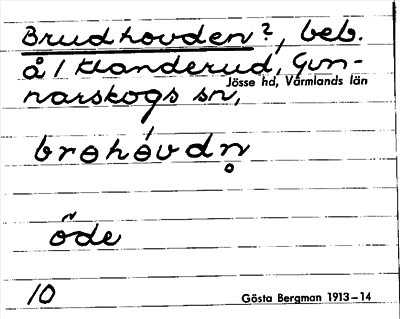 Brudhovden?, beb.
å / Klanderud, Gun-
narskogs sn,
Jösse hd, Värmlands län
brɵhɵ́vdn̥
öde
10
Gösta Bergman 1913–14